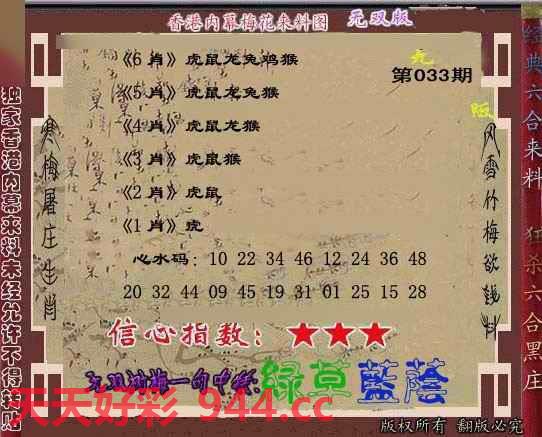 香港内幕梅花来料图 无双版
《6 肖》虎鼠龙兔鸡猴
第033期
《5 肖》虎鼠龙兔猴
《4 肖》虎鼠龙猴
《3 肖》虎鼠猴
《2 肖》虎鼠
《1 肖》虎
心水码：10 22 34 46 12 24 36 48
20 32 44 09 45 19 31 01 25 15 28
信心指数：★★★
绿草 蓝蔭
天天好彩 944.cc
版权所有 翻版必究
独家香港内幕来料未经允许不得转贴
寒梅屠庄生肖
风雪竹梅欲钱料
经典六合来料
狂杀六合黑庄